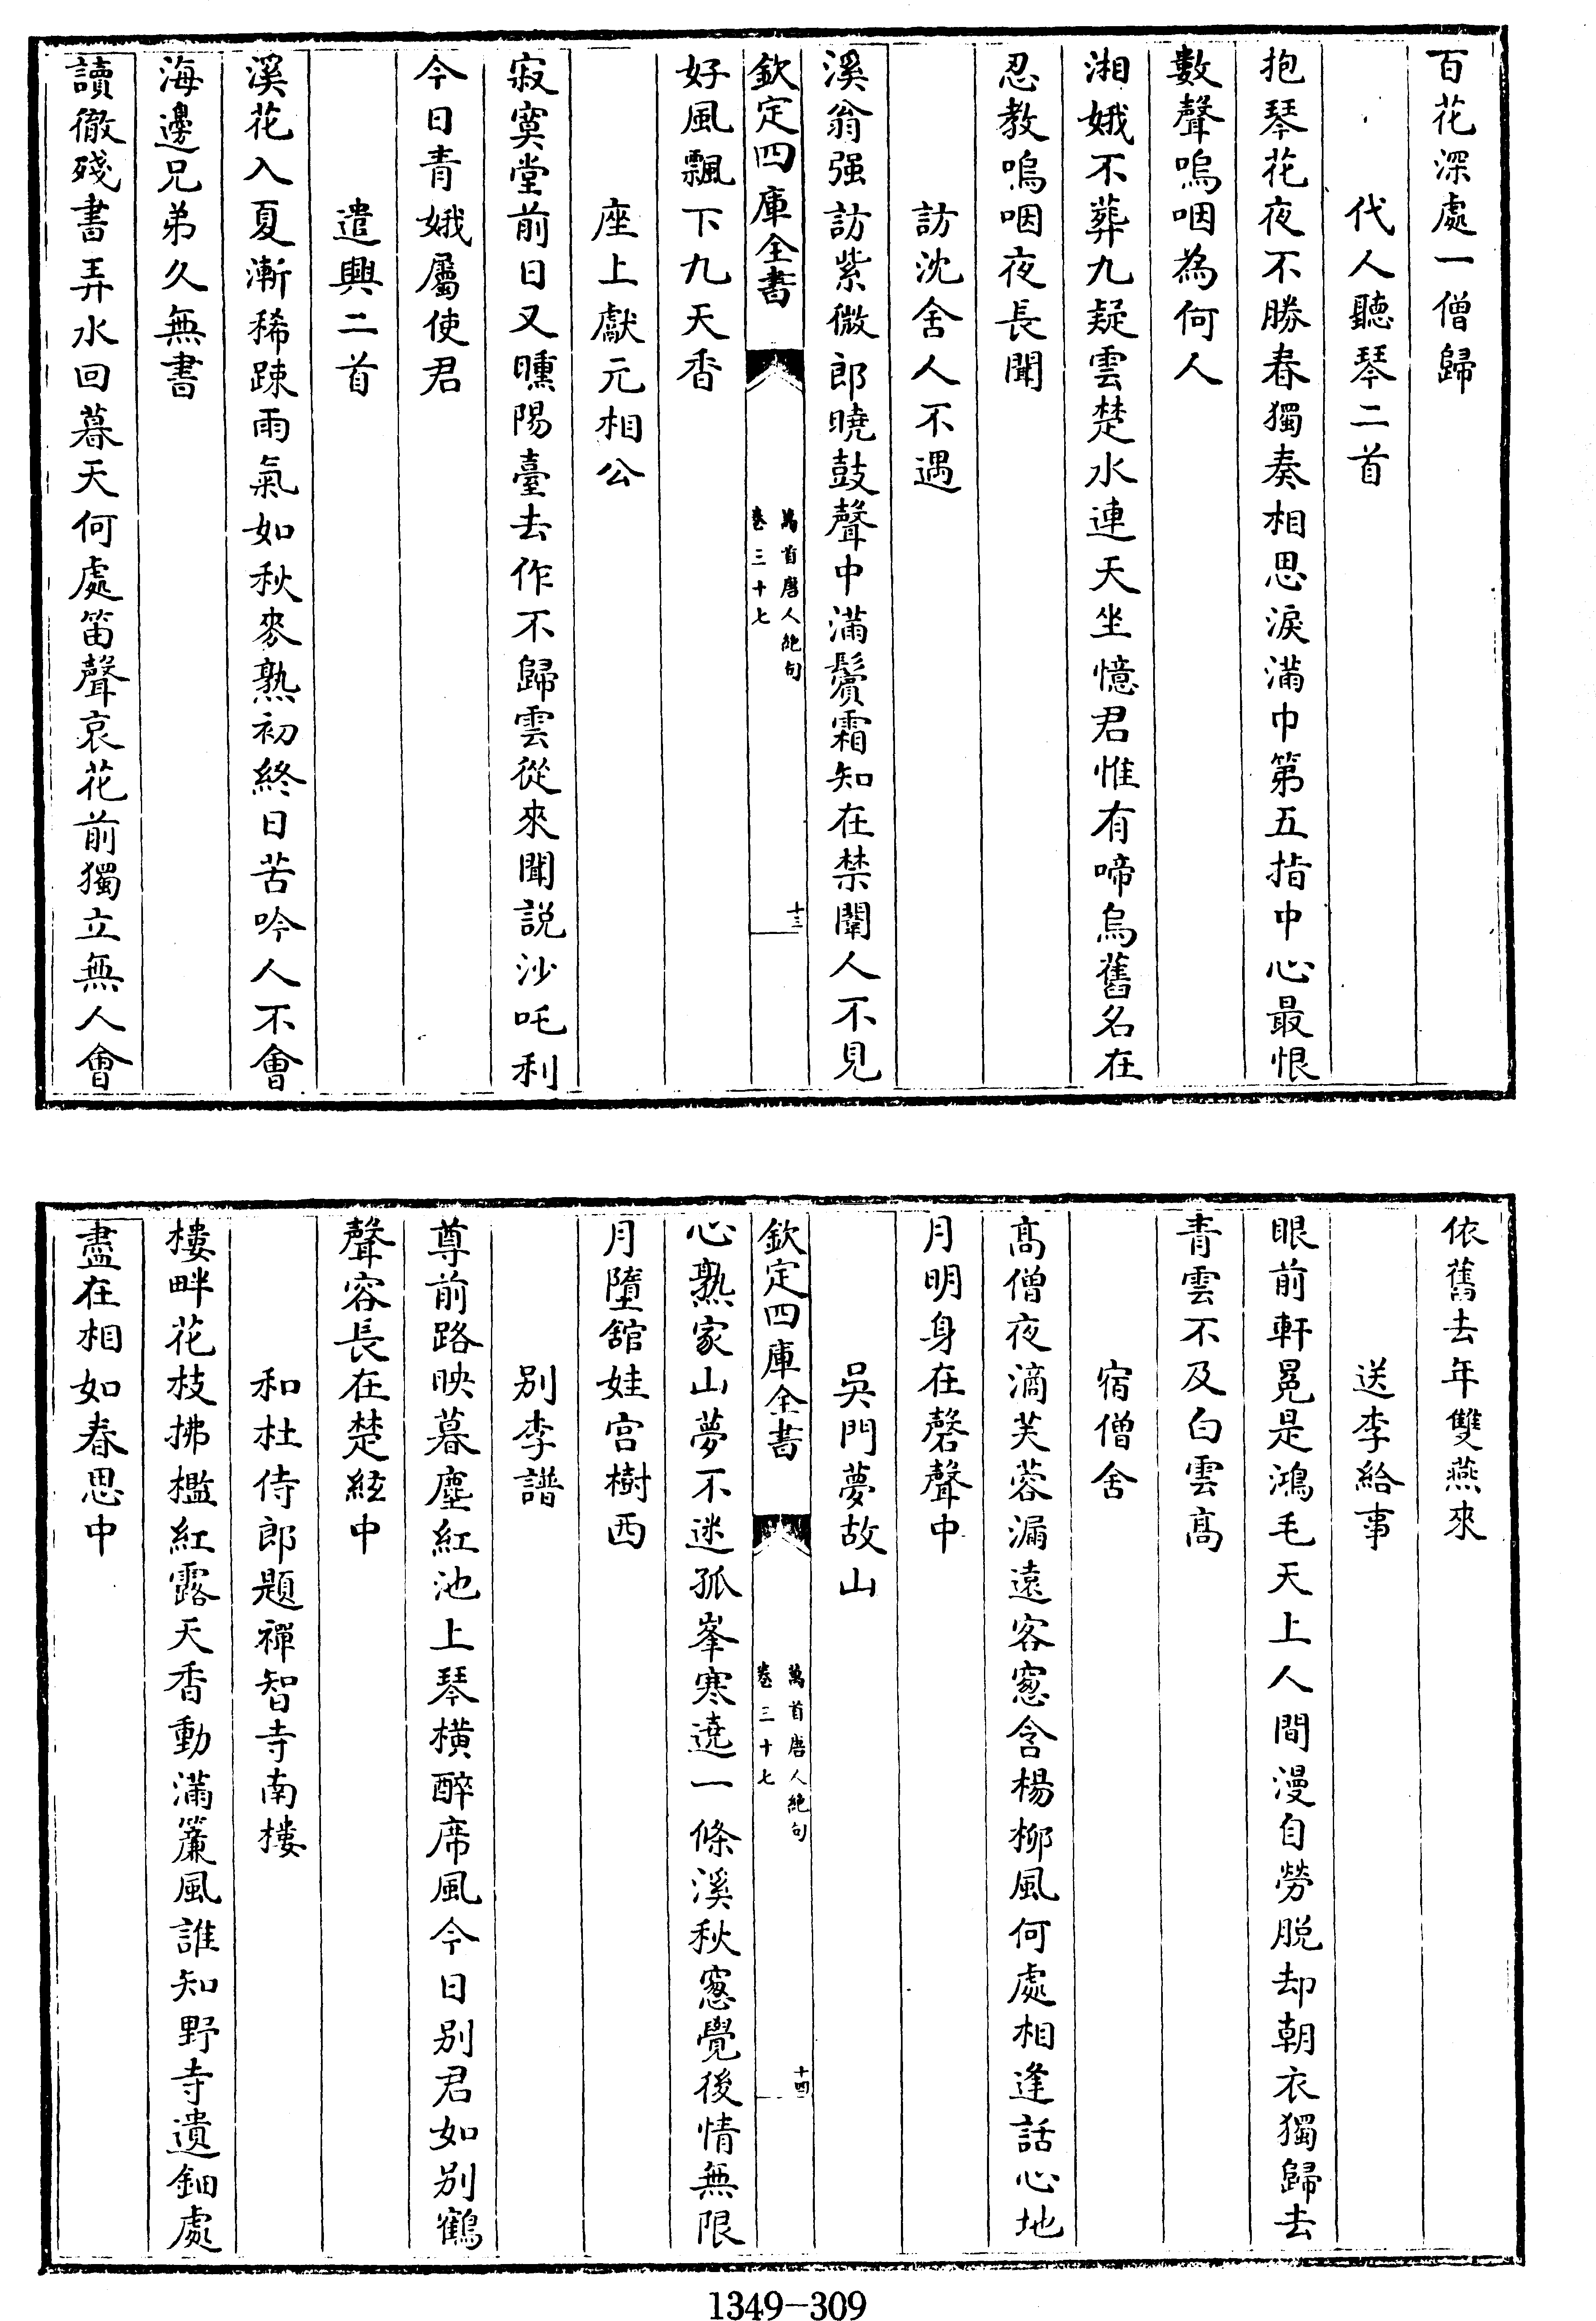 百花深處一僧歸
代人聽琴二首
抱琴花夜不勝春獨奏相思淚滿巾第五指中心最恨
數聲嗚咽為何人
湘娥不葬九疑雲楚水連天坐憶君惟有啼烏舊名在
忍教嗚咽夜長聞
訪沈舍人不遇
溪翁强訪紫微郎曉鼓聲中滿鬢霜知在禁闈人不見
欽定四庫全書
萬首唐人絶句
卷三十七
十三
好風飄下九天香
座上獻元相公
寂寞堂前日又曛陽臺去作不歸雲從來聞説沙吒利
今日青娥屬使君
遣興二首
溪花入夏漸稀踈雨氣如秋麥熟初終日苦吟人不會
海邊兄弟久無書
讀徹殘書弄水回暮天何處笛聲哀花前獨立無人會
依舊去年雙燕來
送李給事
眼前軒冕是鴻毛天上人間漫自勞脱却朝衣獨歸去
青雲不及白雲髙
宿僧舍
髙僧夜滴芙蓉漏遠客窻含楊柳風何處相逢話心地
月明身在磬聲中
吳門夢故山
欽定四庫全書
萬首唐人絶句
卷三十七
十四
心熟家山夢不迷孤峯寒遶一條溪秋窻覺後情無限
月墮舘娃宫樹西
别李譜
尊前路映暮塵紅池上琴横醉席風今日别君如别鶴
聲容長在楚絃中
和杜侍郎題禪智寺南樓
樓畔花枝拂檻紅露天香動滿簾風誰知野寺遺鈿處
盡在相如春思中
1349-309